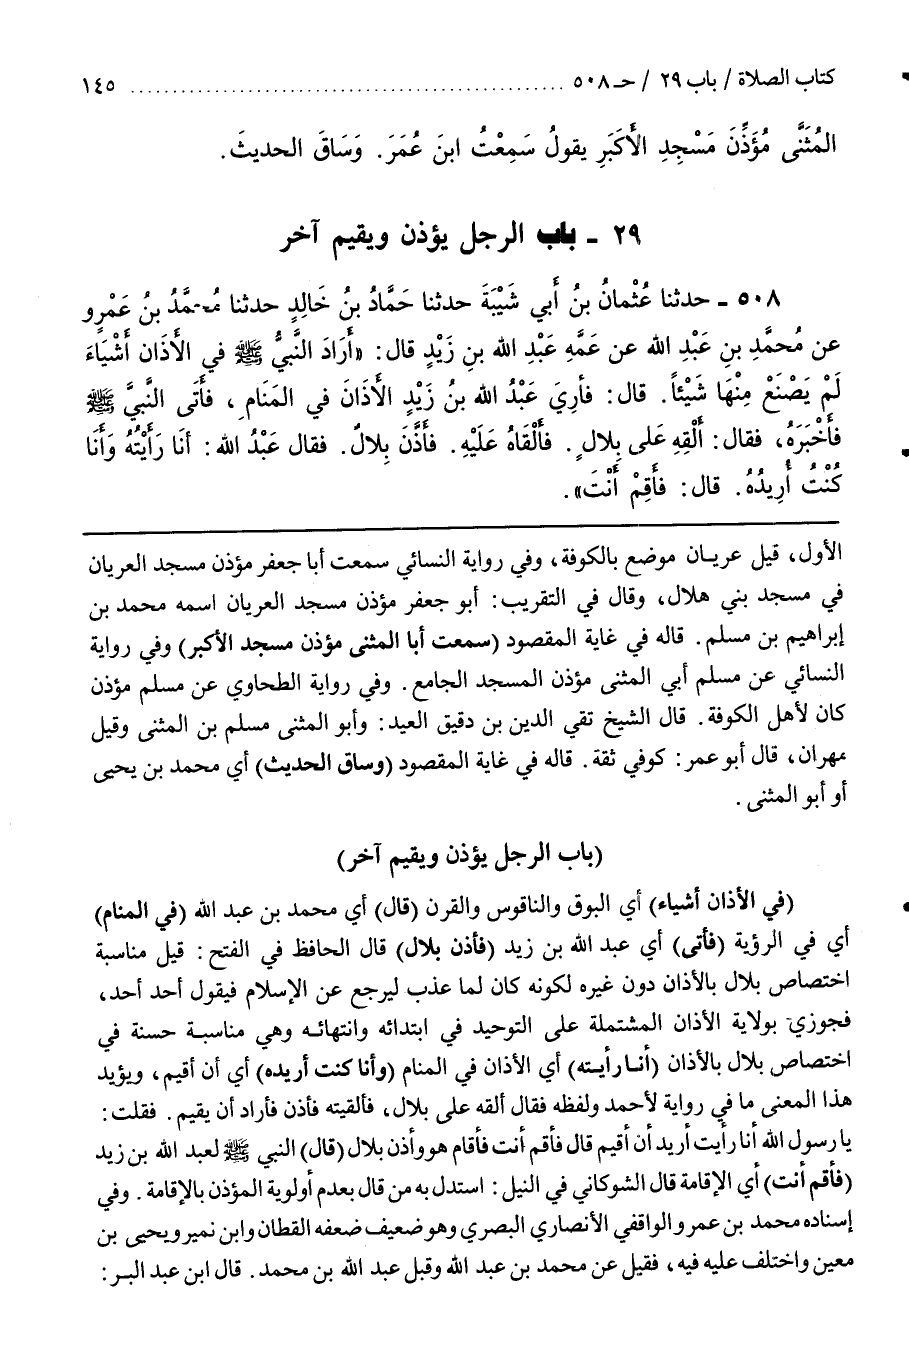 كتاب الصلاة / باب ٢٩ / حـ ٥٠٨ ........................................ ١٤٥
المُثَنَّى مُؤَذِّنَ مَسْجِدِ الأَكَبَرِ يقولُ سَمِعْتُ ابنَ عُمَرَ. وَسَاقَ الحديثَ.
٢٩ ـ باب الرجل يؤذن ويقيم آخر
٥٠٨ ـ حدثنا عُثْمانُ بنُ أَبي شَيْبَةَ حدثنا حَمَّادُ بنُ خَالِدٍ حدثنا مُحمَّدُ بنُ عَمْرٍو
عن مُحمَّدِ بنِ عَبْدِ الله عن عَمَّهِ عَبْدِ الله بنِ زَيْدٍ قال: «أَرَادَ النَّبيُّ ﷺ في الأَذَان أَشْيَاءَ
لَمْ يَصْنَعْ مِنْهَا شَيْئاً. قال: فأُرِيَ عَبْدُ الله بنُ زَيْدٍ الأَذَانَ في المَنَامِ، فأَتَى النَّبيَّ ﷺ
فأَخْبَرَهُ، فقال: أَلْقِهِ عَلى بِلالٍ. فأَلْقَاهُ عَلَيْهِ. فأَذَّنَ بِلالٌ. فقال عَبْدُ الله: أنَا رَأَيْتُهُ وَأَنَا
كُنْتُ أُرِيدُهُ. قال: فأَقِمْ أَنْتَ».
الأول، قيل عريـان موضع بالكوفة، وفي رواية النسائي سمعت أبا جعفر مؤذن مسجد العريان
في مسجد بني هلال، وقال في التقريب: أبو جعفر مؤذن مسجد العريان اسمه محمد بن
إبراهيم بن مسلم. قاله في غاية المقصود (سمعت أبا المثنى مؤذن مسجد الأكبر) وفي رواية
النسائي عن مسلم أبي المثنى مؤذن المسجد الجامع. وفي رواية الطحاوي عن مسلم مؤذن
كان لأهل الكوفة. قال الشيخ تقي الدين بن دقيق العيد: وأبو المثنى مسلم بن المثنى وقيل
مهران، قال أبو عمر: كوفي ثقة. قاله في غاية المقصود (وساق الحديث) أي محمد بن يحيى
أو أبو المثنى.
(باب الرجل يؤذن ويقيم آخر)
(في الأذان أشياء) أي البوق والناقوس والقرن (قال) أي محمد بن عبد الله (في المنام)
أي في الرؤية (فأتى) أي عبد الله بن زيد (فأذن بلال) قال الحافظ في الفتح: قيل مناسبة
اختصاص بلال بالأذان دون غيره لكونه كان لما عذب ليرجع عن الإسلام فيقول أحد أحد،
فجوزي بولاية الأذان المشتملة على التوحيد في ابتدائه وانتهائـه وهي مناسبـة حسنة في
اختصاص بلال بالأذان (أنـا رأيـته) أي الأذان في المنام (وأنا كنت أريده) أي أن أقيم، ويؤيد
هذا المعنى ما في رواية لأحمد ولفظه فقال ألقه على بلال، فألقيته فأذن فأراد أن يقيم. فقلت:
يا رسول الله أنا رأيت أريد أن أقيم قال فأقم أنت فأقام هو وأذن بلال (قال) النبي ﷺ لعبد الله بن زيد
(فأقم أنت) أي الإقامة قال الشوكاني في النيل: استدل به من قال بعدم أولوية المؤذن بالإقامة. وفي
إسناده محمد بن عمرو الواقفي الأنصاري البصري وهو ضعيف ضعفه القطان وابن نمير ويحيى بن
معين واختلف عليه فيه، فقيل عن محمد بن عبد الله وقيل عبد الله بن محمد. قال ابن عبد البـر: